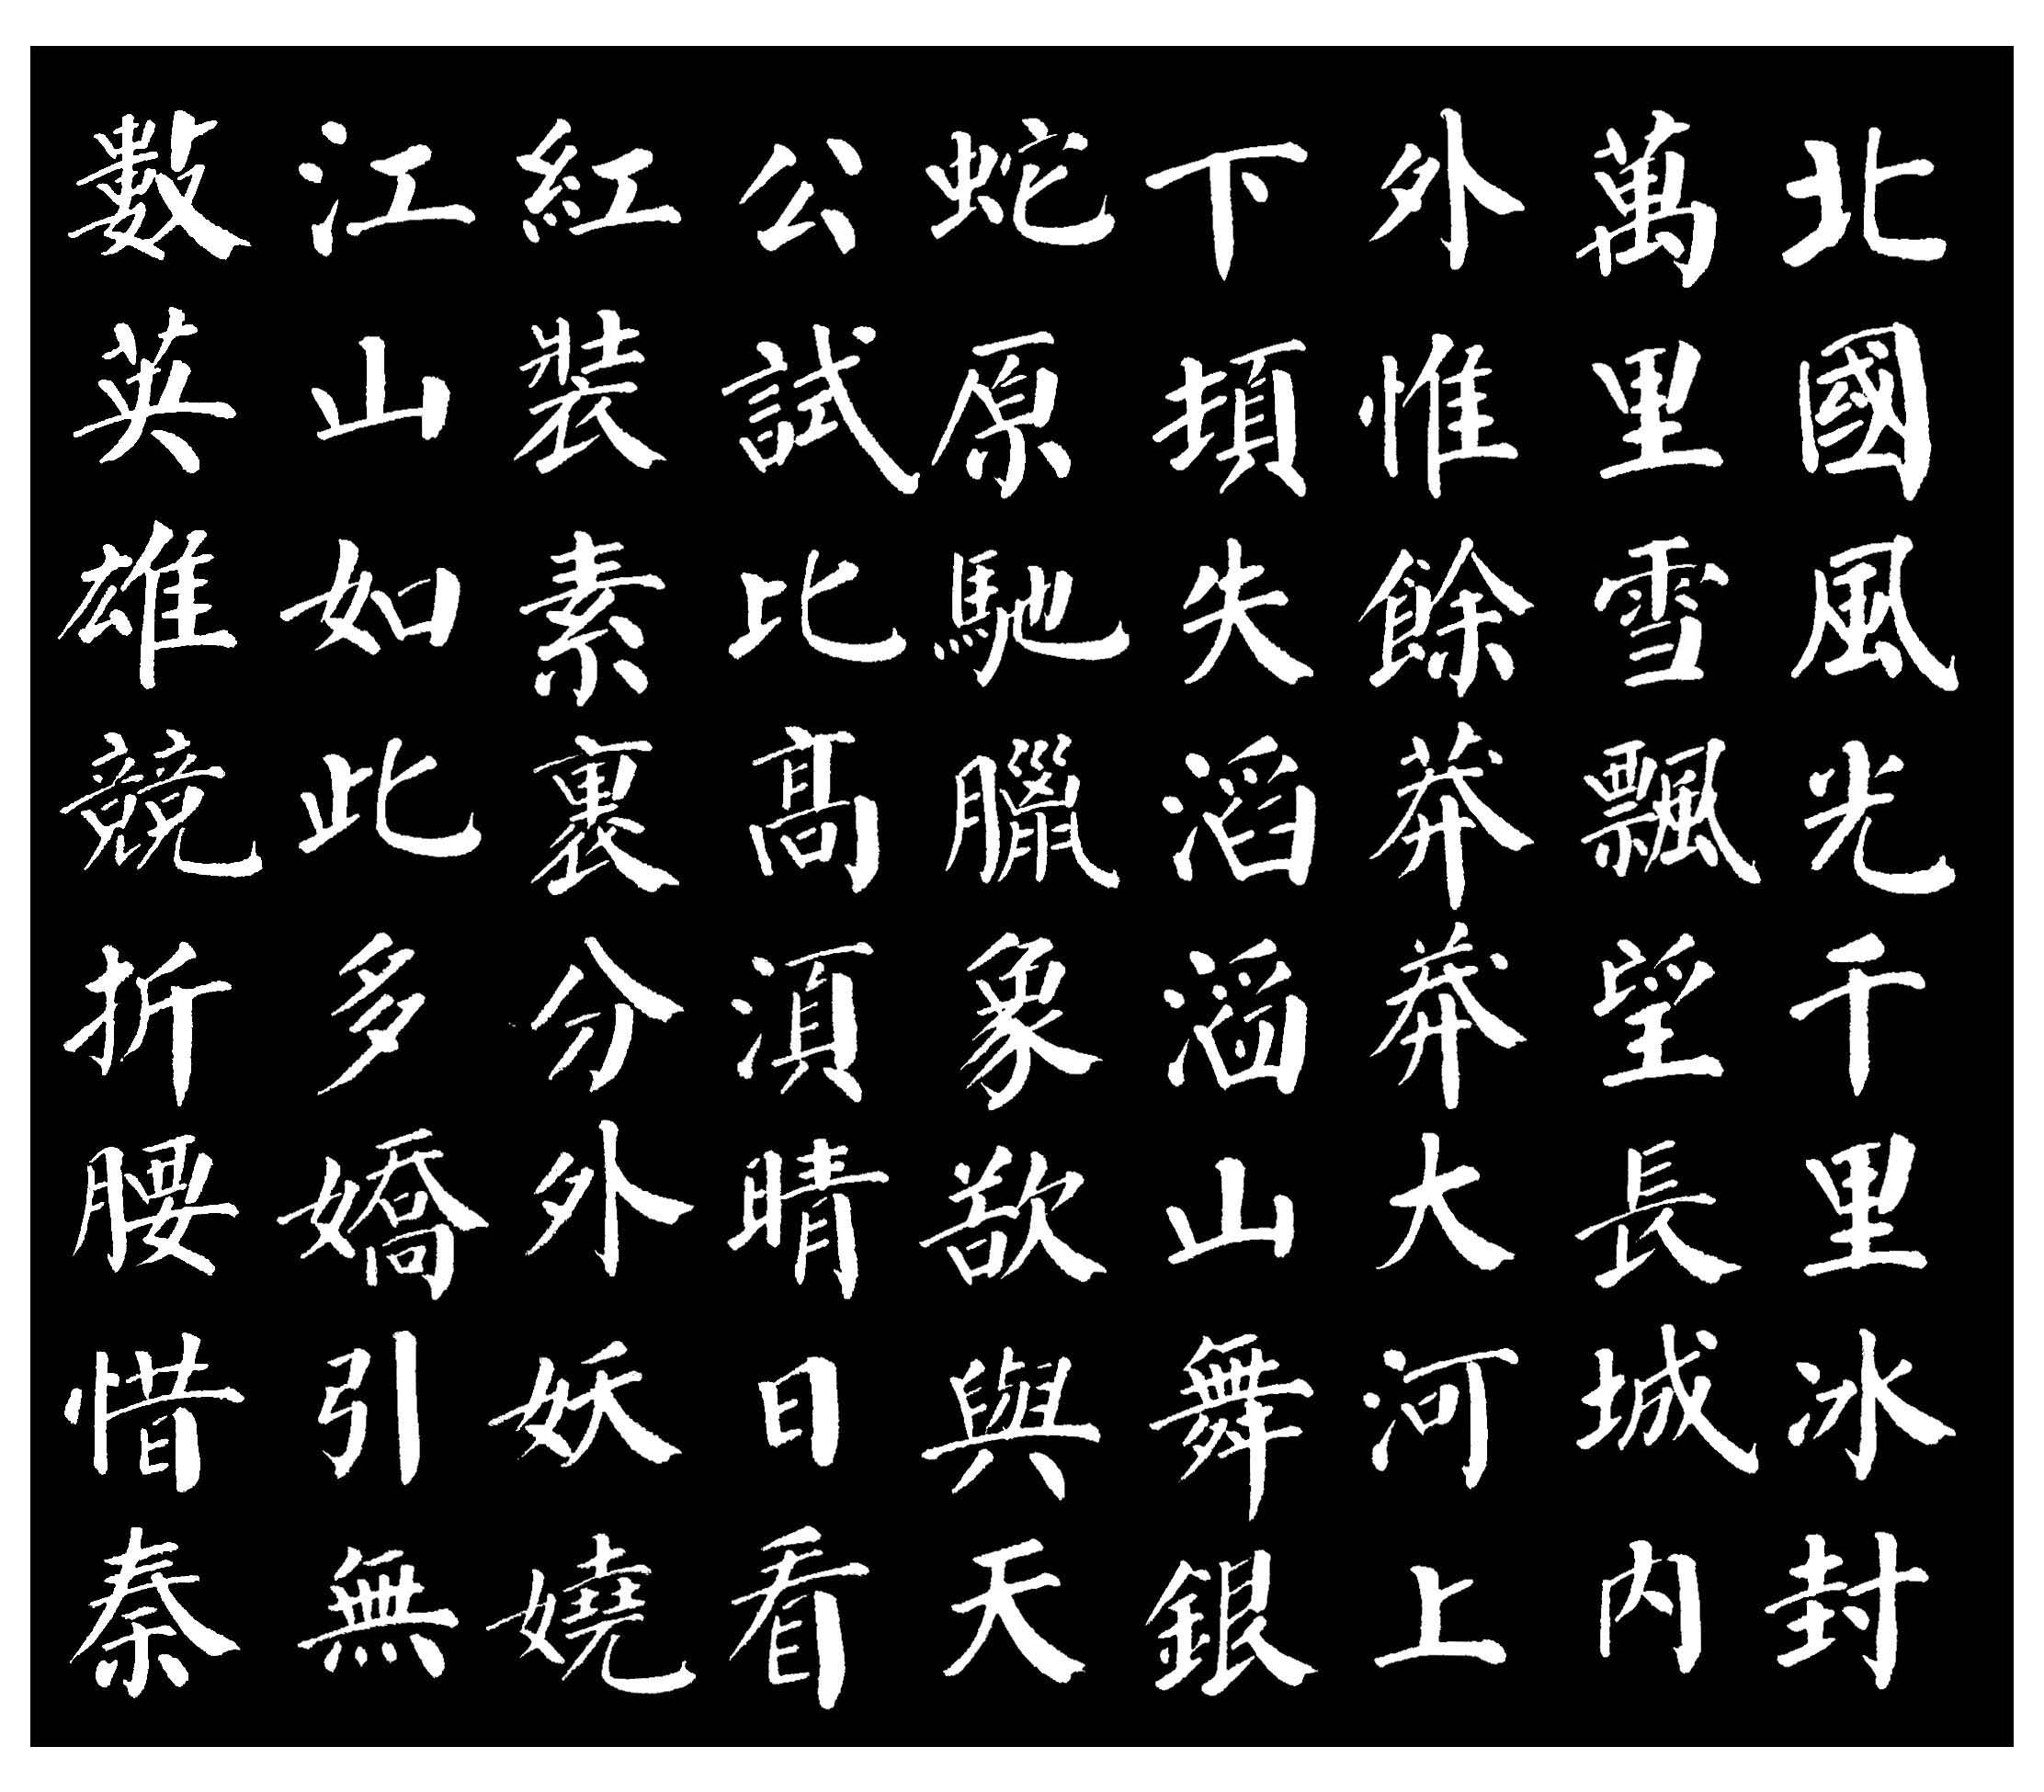 北國風光千里冰封
萬里雪飄望長城內
外惟餘莽莽大河上
下頓失滔滔山舞銀
蛇原馳臘象欲與天
公試比高須晴日看
紅裝素裹分外妖嬈
江山如此多嬌引無
數英雄競折腰惜秦